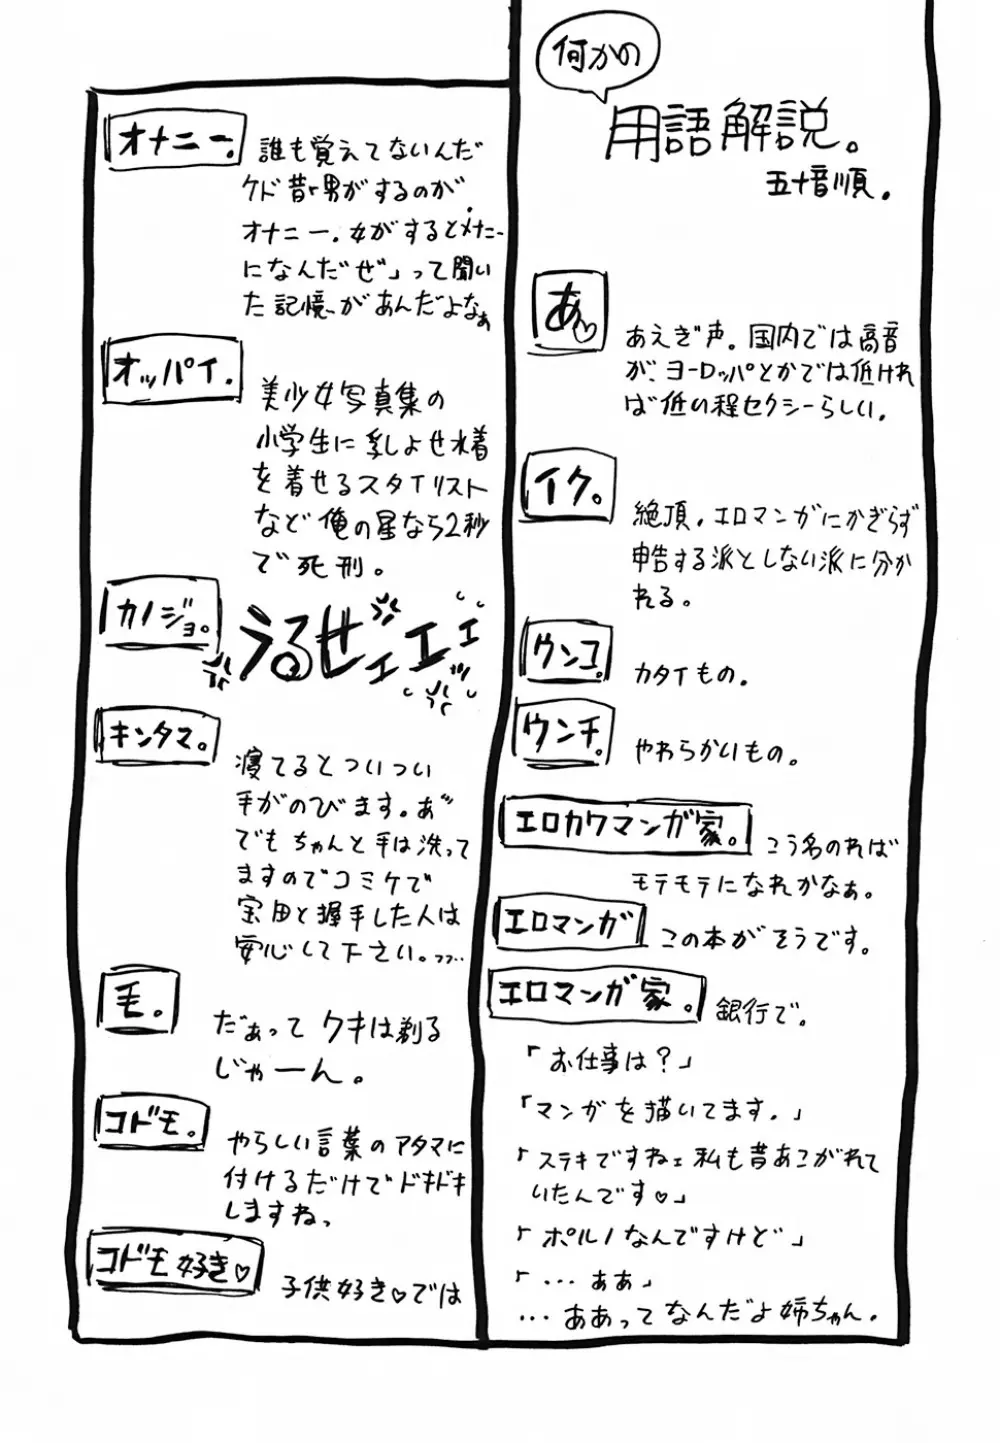 何かの
用語解説。
五十音順。
あ♡
あえぎ声。国内では高音
が、ヨーロッパとかでは低けれ
ば低い程セクシーらしい。
イク。
絶頂。エロマンガにかぎらず
申告する派としない派に分か
れる。
ウンコ。
カタイもの。
ウンチ。
やわらかいもの。
エロカワマンガ家。
こう名のれば
モテモテになれかなぁ。
エロマンガ
この本がそうです。
エロマンガ家。
銀行で。
「お仕事は？」
「マンガを描いてます。」
「ステキですねェ私も昔あこがれて
いたんです♡」
「ポルノなんですけど」
「…ああ」
…ああってなんだよ姉ちゃん。
オナニー。
誰も覚えてないんだ
ケド昔「男がするのが、
オナニー。女がするとメナニー
になんだぜ」って聞い
た記憶があんだよなぁ
オッパイ。
美少女写真集の
小学生に乳よせ水着
を着せるスタイリスト
など俺の星なら2秒
で死刑。
カノジョ。
うるせェエェ
キンタマ。
寝てるとついつい
手がのびます。あ゛
でもちゃんと手は洗って
ますのでコミケで
宝田と握手した人は
安心して下さい。フフ…
毛。
だぁって クキは剃る
じゃーん。
コドモ。
やらしい言葉のアタマに
付けるだけでドキドキ
しますねっ
コドモ好き♡
子供好き♡では